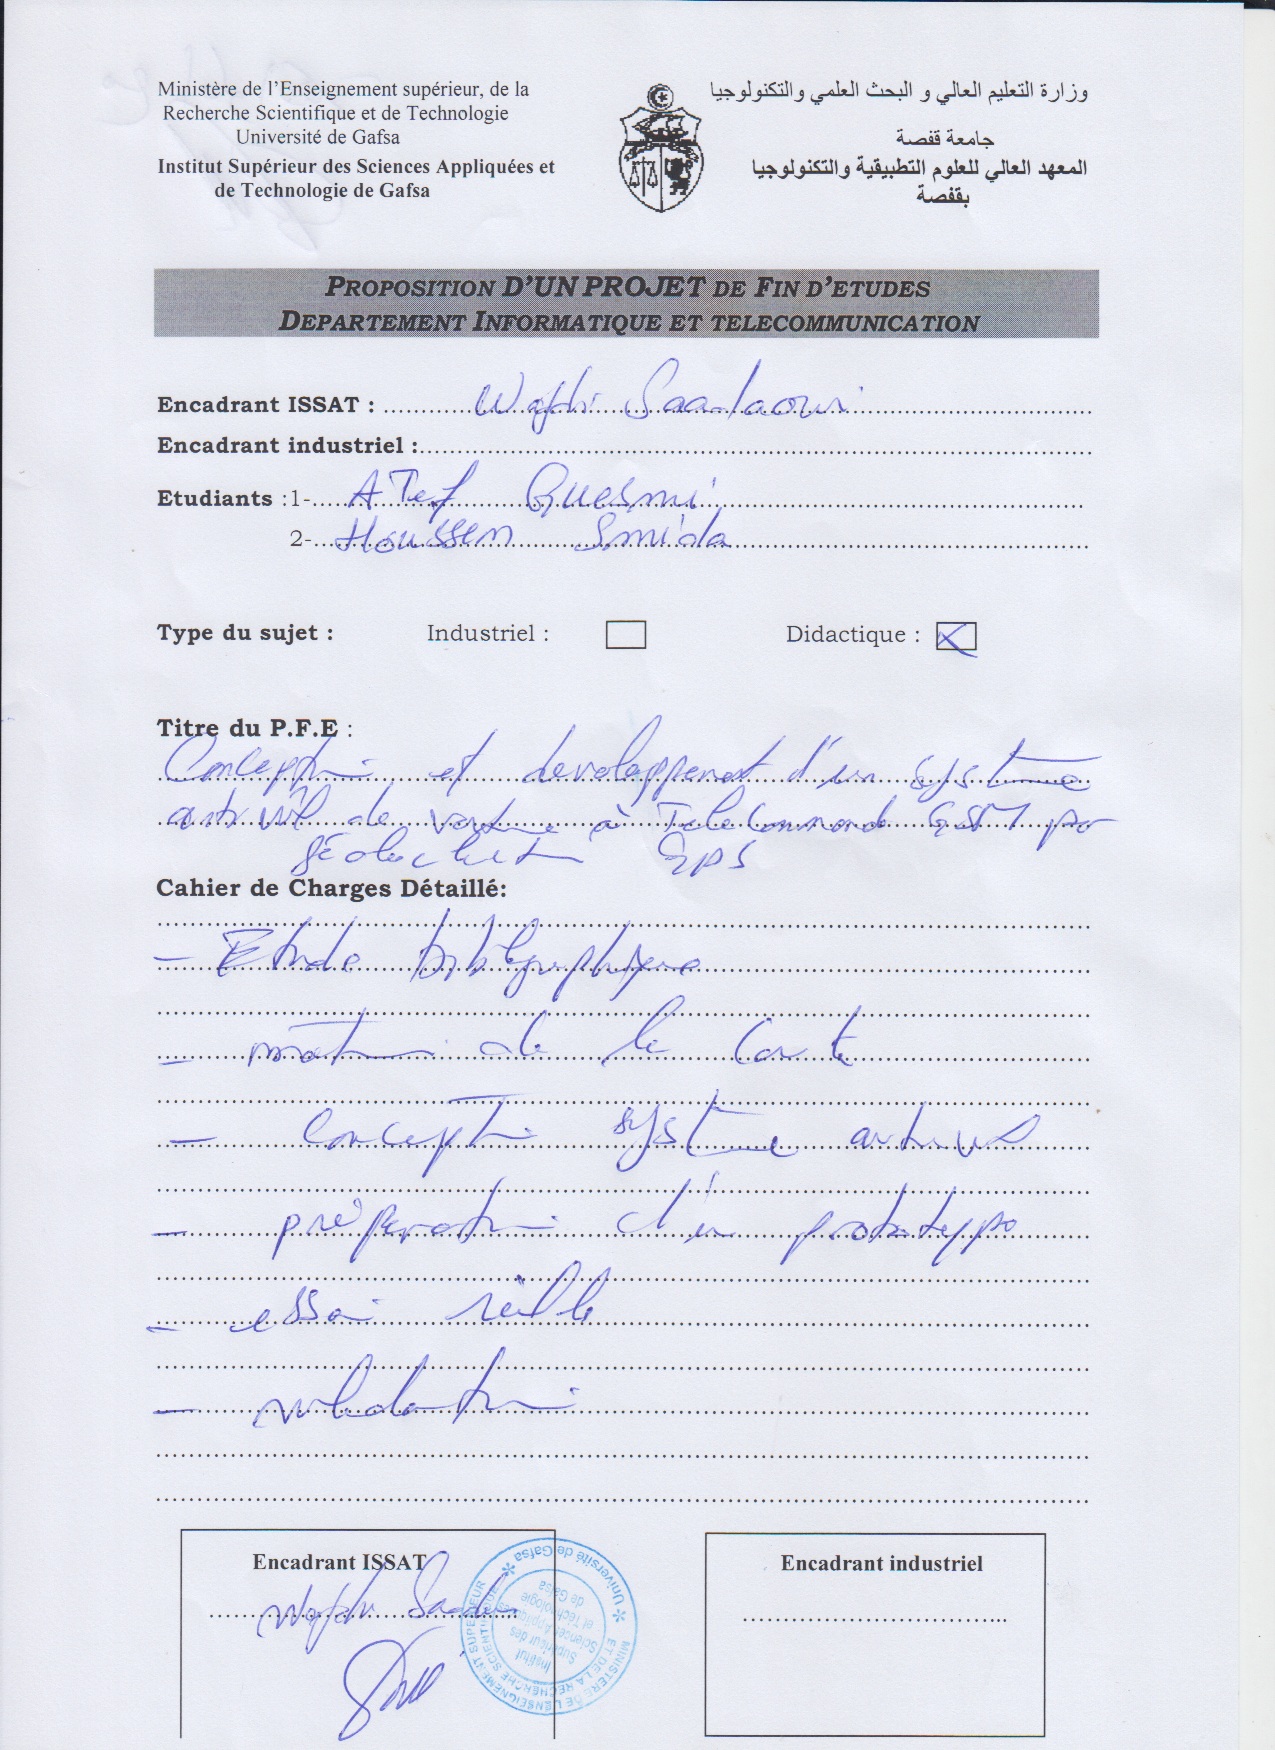 Ministère de l'Enseignement supérieur, de la
Recherche Scientifique et de Technologie
Université de Gafsa
Institut Supérieur des Sciences Appliquées et
de Technologie de Gafsa
وزارة التعليم العالي و البحث العلمي والتكنولوجيا
جامعة قفصة
المعهد العالي للعلوم التطبيقية والتكنولوجيا
بقفصة
PROPOSITION D'UN PROJET DE FIN D'ETUDES
DEPARTEMENT INFORMATIQUE ET TELECOMMUNICATION
Encadrant ISSAT : Wajdi Saadaoui
Encadrant industriel :
Etudiants :1- ATef Guesmi
2- Houssem Smida
Type du sujet : Industriel : Didactique :
Titre du P.F.E :
Conception et developpement d'un système
antivol de voiture à Telecommande GSM par
géolocalisation GPS
Cahier de Charges Détaillé:
- Etude bibliographique
- de la carte
- Conception système antivol
- préparation d'un prototype
- essai réelle
- validation
Encadrant ISSAT
Wajdi Saadaoui
Encadrant industriel
MINISTERE DE L'ENSEIGNEMENT SUPERIEUR
ET DE LA RECHERCHE SCIENTIFIQUE
Université de Gafsa
Institut
Supérieur des
Sciences Appliquées
et Technologie
de Gafsa